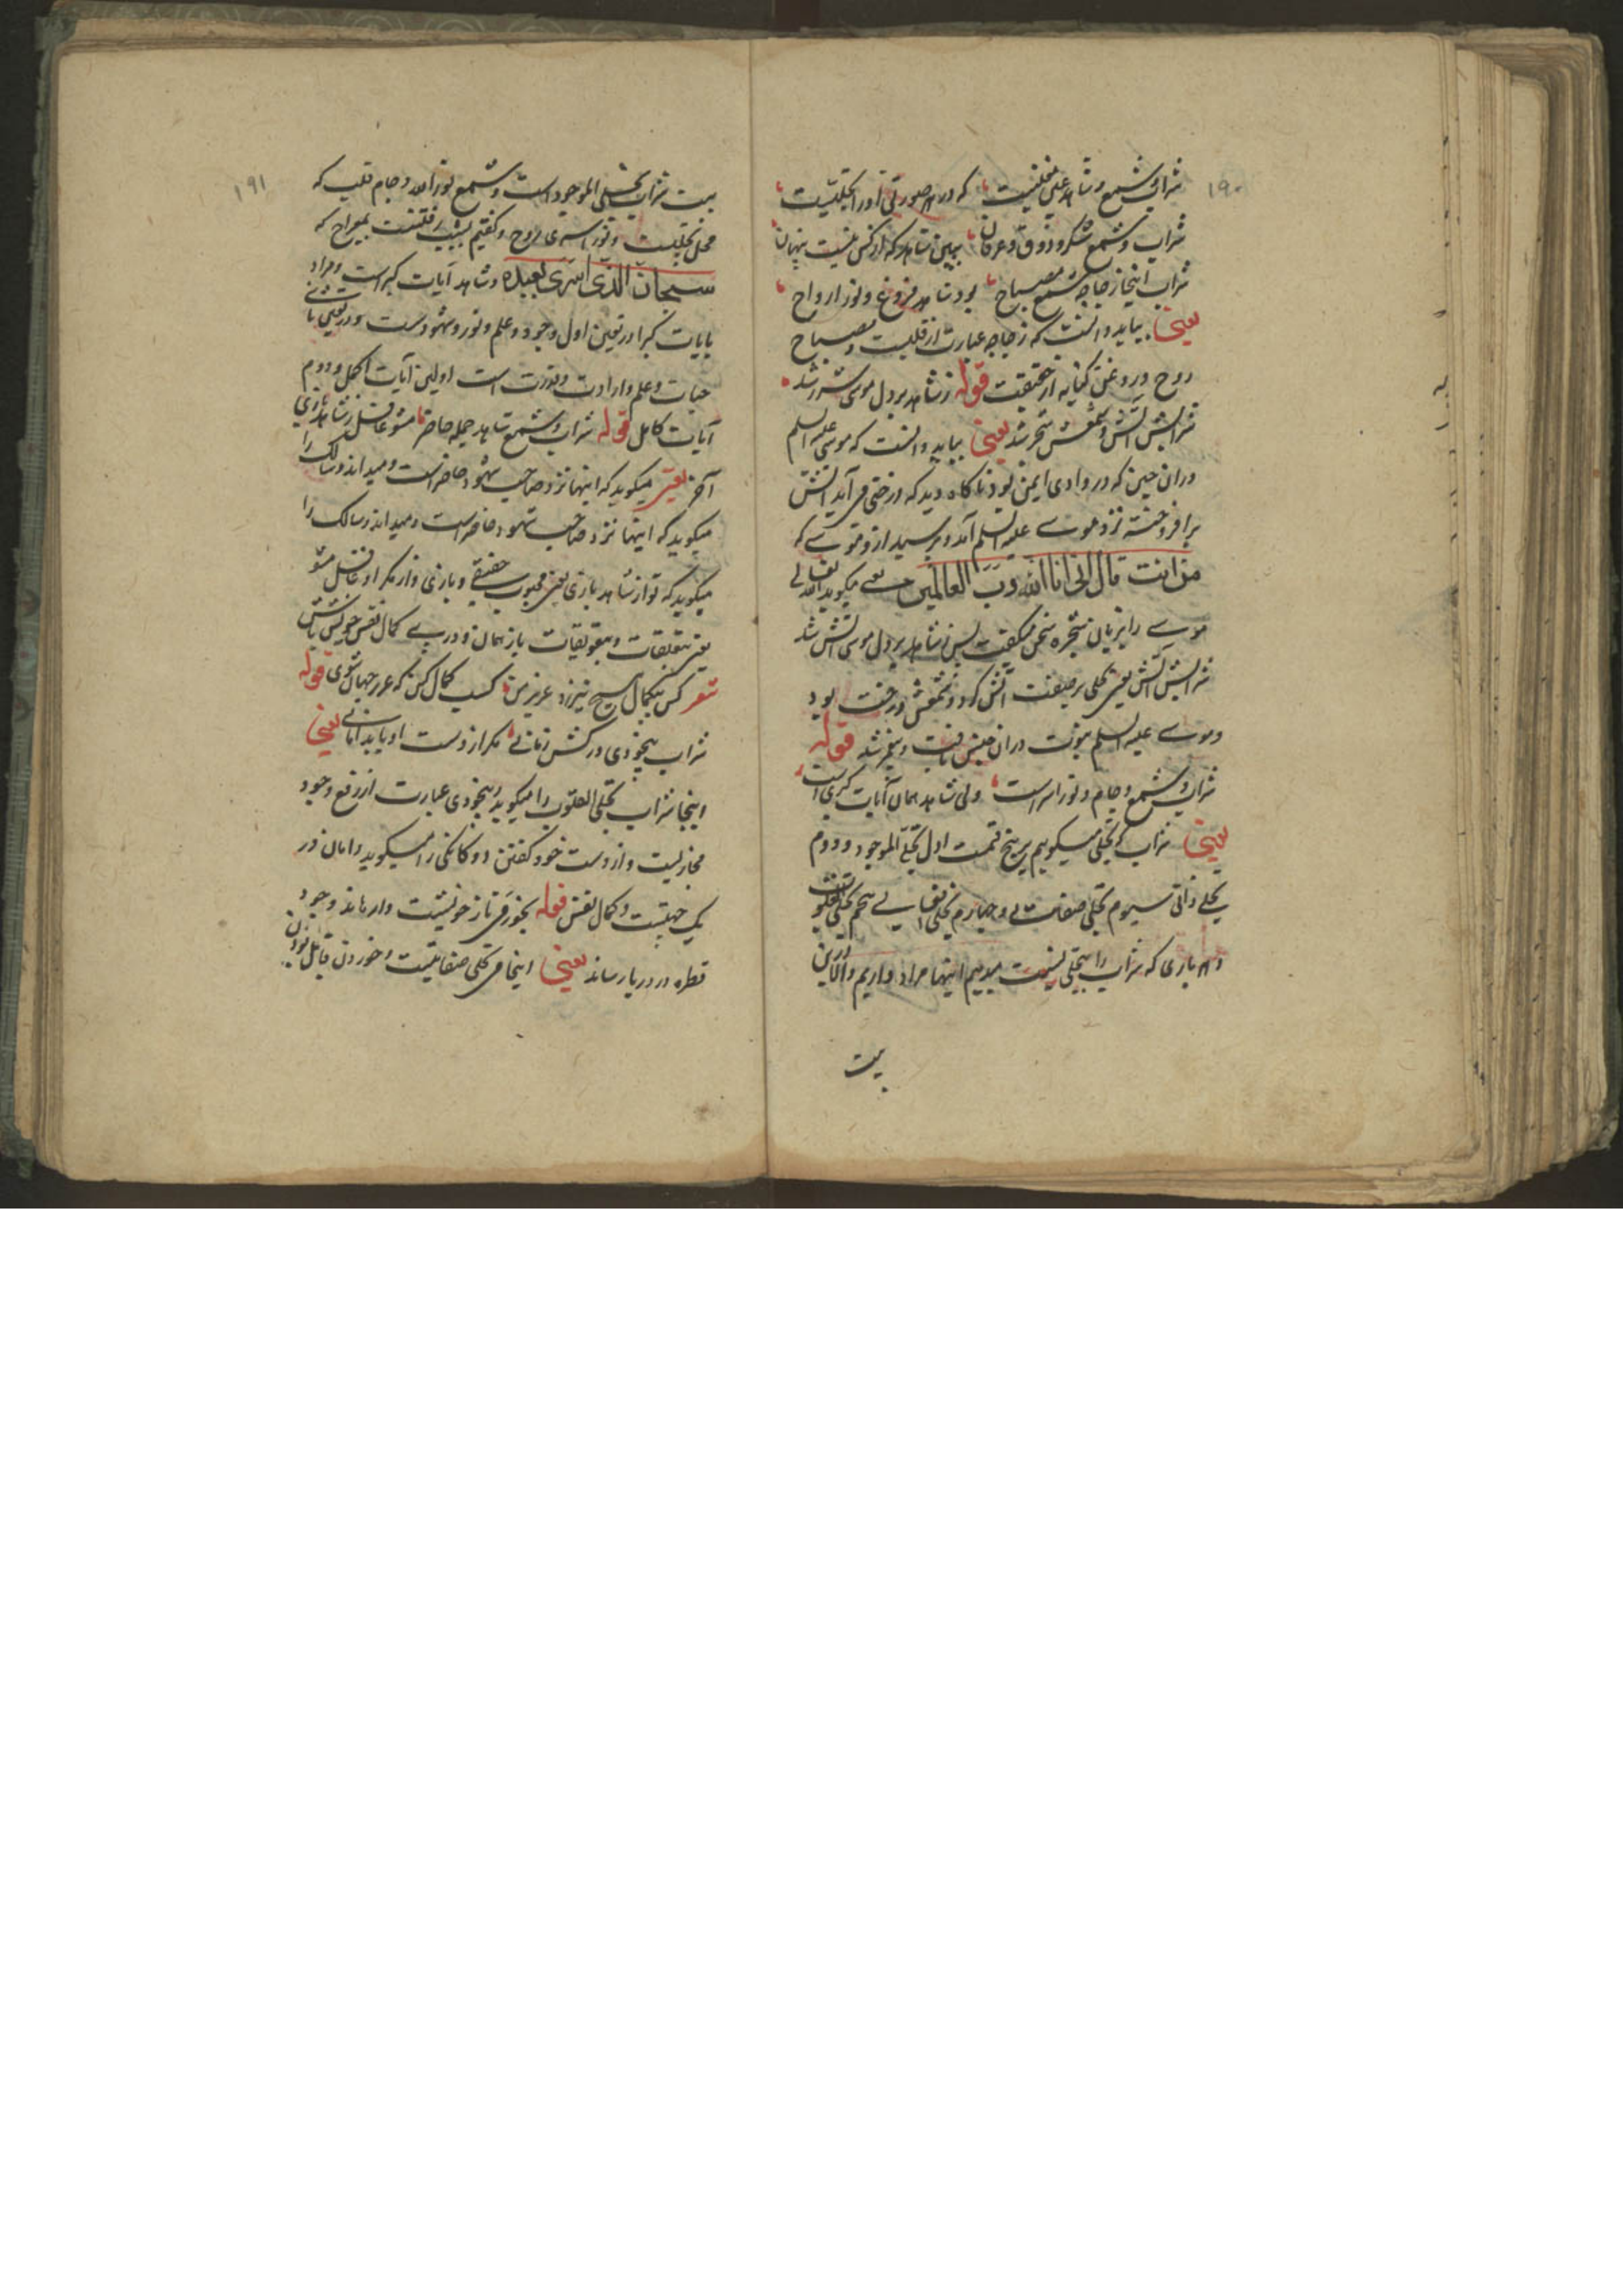 ۱۹۰
شراب و شمع و شاهد عین معنیست که در هر صورتی او را تجلیست
شراب و شمع سکر و ذوق عرفان ببین شاهد که از کس نیست پنهان
شراب اینجا زجاجه شمع مصباح بود شاهد فروغ نور ارواح
یعنی بباید دانست که زجاجه عبارت از قلبست و مصباح
روح و روغن کنایه از حقیقت قوله ز شاهد بر دل موسی شرر شد
شرابش آتش و شمعش شجر شد یعنی بباید دانست که موسی علیه السلم
دران حین که در وادی ایمن بود ناکاه دید که درختی می آید آتش
برافروخته نزد موسے علیه السلم آمد و پرسید ازو موسے که
من انت قال انی انا الله رب العالمین یعنے میکوید الله تعالی
موسے را بزبان شجره سخن میکفت پس ز شاهد بر دل موسی آتش شد
شرابش آتش یعنی تجلی بر صفت آتش کرد و شمعش درخت بود
وموسے علیه السلم نبوت دران حین یافت و بیخبر شد قوله
شراب و شمع و جام و نور اسراست ولی شاهد همان آیات کبری است
یعنی شراب که تجلی میکوییم بر پنج قسمت اول تجلی الموجود و دوم
تجلے ذاتی سیوم تجلی صفاتے و چهارم تجلی افعالے پنجم تجلی القلوب
و هر باری که شراب را بتجلی نسبت میدهیم اینها مراد داریم
بیت
۱۹۱
بیت شراب تجلی الموجود است و شمع نور الله و جام قلب که
محل تجلیست و نور اسری روح و کفتیم بشب رفتنست بمعراج که
سبحان الذی اسری بعبده و شاهد آیات کبراست و مراد
بآیات کبرا در تعین اول وجود و علم و نور و شهودست و در تعین ثانی
حیات و علم و ارادت و قدرت است اولین آیات اکمل و دوم
آیات کامل قوله شراب و شمع و شاهد جمله حاضر مشو غافل ز شاهد بازی
آخر یعنی میکوید که اینها نزد صاحب شهود حاضر است و میداند و سالک را
میکوید که اینها نزد صاحب شهود حاضر است و میداند و سالک را
میکوید که تو از شاهد بازی یعنی محبوب حقیقے و بازی وار مکر او غافل مشو
یعنی بتعلقات و بتعویقات باز نمان و در پے کمال نفس خویش باش
شعر کس بیکمال هیچ نیرزد عزیز من کسب کمال کن که عزیز جهان شوی قوله
شراب بیخودی در کش زمانے مکر از دست او یابد امانے یعنی
اینجا شراب تجلی القلوب را میکوید و بیخودی عبارت از رفع وجود
مجازیست و از دست خود کفتن دوکانکی را میکوید و امان در
یک جهتیست و کمال نفس قوله بخور می تا ز خویشت وارهاند وجود
قطره در دریا رساند یعنی اینجا می تجلی صفاتیست و خوردن قابل بودن